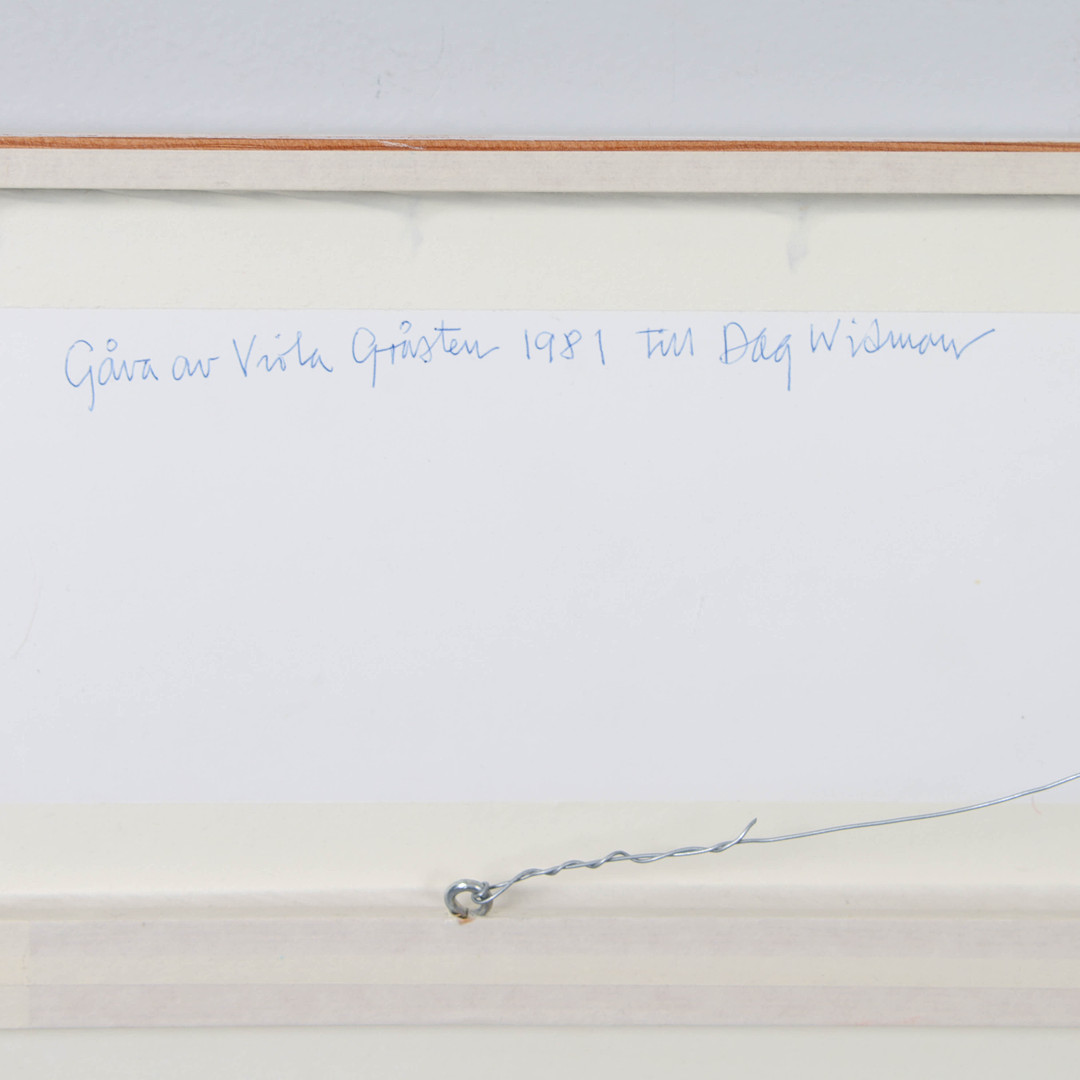 Gåva av Viola Gråsten 1981 till Dag Widman